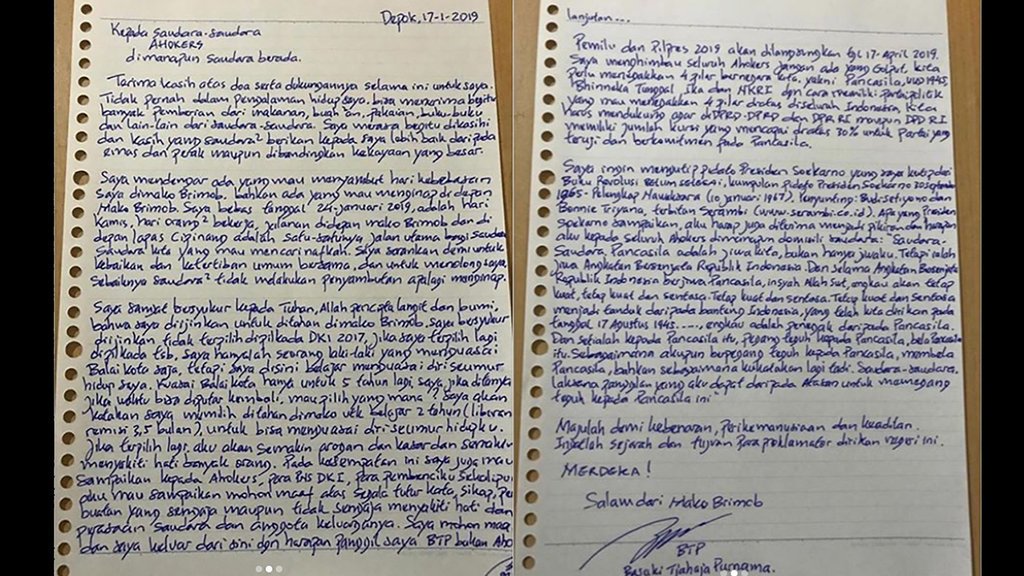 Depok, 17-1-2019
Kepada Saudara-saudara
AHOKERS
dimanapun saudara berada.
Terima kasih atas doa serta dukungannya selama ini untuk saya.
Tidak pernah dalam pengalaman hidup saya, bisa menerima begitu
banyak pemberian dari makanan, buah²an, pakaian, buku-buku
dan lain-lain dari saudara-saudara. Saya merasa begitu dikasihi
dan kasih yang saudara² berikan kepada saya lebih baik daripada
emas dan perak maupun dibandingkan kekayaan yang besar.
Saya mendengar ada yang mau menyambut hari kebebasan
saya dimako Brimob. bahkan ada yang mau menginap di depan
Mako Brimob. Saya bebas tanggal 24 januari 2019, adalah hari
Kamis, hari orang² bekerja, jalanan didepan mako Brimob dan di
depan lapas Cipinang adalah satu-satunya jalan utama bagi saudara
Saudara kita yang mau mencari nafkah. Saya sarankan demi untuk
kebaikan dan ketertiban umum bersama, dan untuk menolong saya
sebaiknya saudara² tidak melakukan penyambutan apalagi menginap.
Saya sangat bersyukur kepada Tuhan, Allah pencipta langit dan bumi,
bahwa saya diijinkan untuk ditahan dimako Brimob. Saya bersyukur
diijinkan tidak terpilih dipilkada DKI 2017, jika saya terpilih lagi
dipilkada tsb, saya hanyalah seorang laki-laki yang menguasai
Balai kota saja, tetapi saya disini belajar menguasai diri seumur
hidup saya. Kuasai Balai kota hanya untuk 5 tahun lagi saya jika ditanya
jika waktu bisa diputar kembali, mau pilih yang mana? Saya akan
katakan saya memilih ditahan dimako utk belajar 2 tahun (liburan
remisi 3,5 bulan), untuk bisa menguasai diri seumur hidupku.
Jika terpilih lagi, aku akan semakin arogan dan kasar dan semakin
menyakiti hati banyak orang. Pada kesempatan ini saya juga mau
sampaikan kepada Ahokers, para PNS DKI, para pembenciku sekalipun
aku mau sampaikan mohon maaf atas segala tutur kata, sikap, per
buatan yang sengaja maupun tidak sengaja menyakiti hati dan
perasaan saudara dan anggota keluarganya. Saya mohon maaf
dan saya keluar dari sini dgn harapan panggil saya BTP bukan Aho
lanjutan...
Pemilu dan Pilpres 2019 akan dilangsungkan tgl 17-April 2019.
Saya menghimbau seluruh Ahokers jangan ada yang Golput. kita
perlu menegakkan 4 pilar bernegara kita, yakni Pancasila, UUD 1945,
Bhinneka Tunggal Ika dan NKRI dgn cara memiliki partai politik
yang mau menegakkan 4 pilar diatas diseluruh Indonesia. Kita
harus mendukung agar di DPRD-DPRD dan DPR RI maupun DPD RI
memiliki jumlah kursi yang mencapai diatas 30% untuk partai yang
teruji dan berkomitmen pada Pancasila.
Saya ingin mengutip pidato Presiden Soekarno yang saya kutip dari
Buku Revolusi Belum selesai, kumpulan pidato Presiden Soekarno 30 September
1965-Pelengkap Nawaksara (10 januari 1967), Penyunting: Budi setiyono dan
Bonnie Triyana, terbitan Serambi (www.serambi.co.id). Apa yang Presiden
Soekarno sampaikan, aku harap juga diterima menjadi pikiran dan harapan
aku kepada seluruh Ahokers dimanapun domisili saudara: Saudara-
Saudara, Pancasila adalah jiwa kita, bukan hanya jiwaku. Tetapi ialah
jiwa Angkatan Bersenjata Republik Indonesia. Dan selama Angkatan Bersenjata
Republik Indonesia berjiwa Pancasila, insyah Allah Swt, engkau akan tetap
kuat, tetap kuat dan sentosa. Tetap kuat dan sentosa. Tetap kuat dan sentosa
menjadi tandak daripada banteng Indonesia, yang telah kita dirikan pada
tanggal 17 Agustus 1945....., engkau adalah penegak daripada Pancasila.
Dan setialah kepada Pancasila itu, pegang teguh kepada Pancasila, bela Pancasila
itu. Sebagaimana akupun berpegang teguh kepada Pancasila, membela
Pancasila, bahkan sebagaimana kukatakan lagi tadi. Saudara-saudara.
laksana panggilan yang aku dapat daripada Atasan untuk memegang
teguh kepada Pancasila ini.
Majulah demi kebenaran, Perikemanusiaan dan keadilan.
Ingatlah sejarah dan tujuan Para proklamator dirikan negeri ini.
MERDEKA!
Salam dari Mako Brimob
BTP
Basuki Tjahaja Purnama.